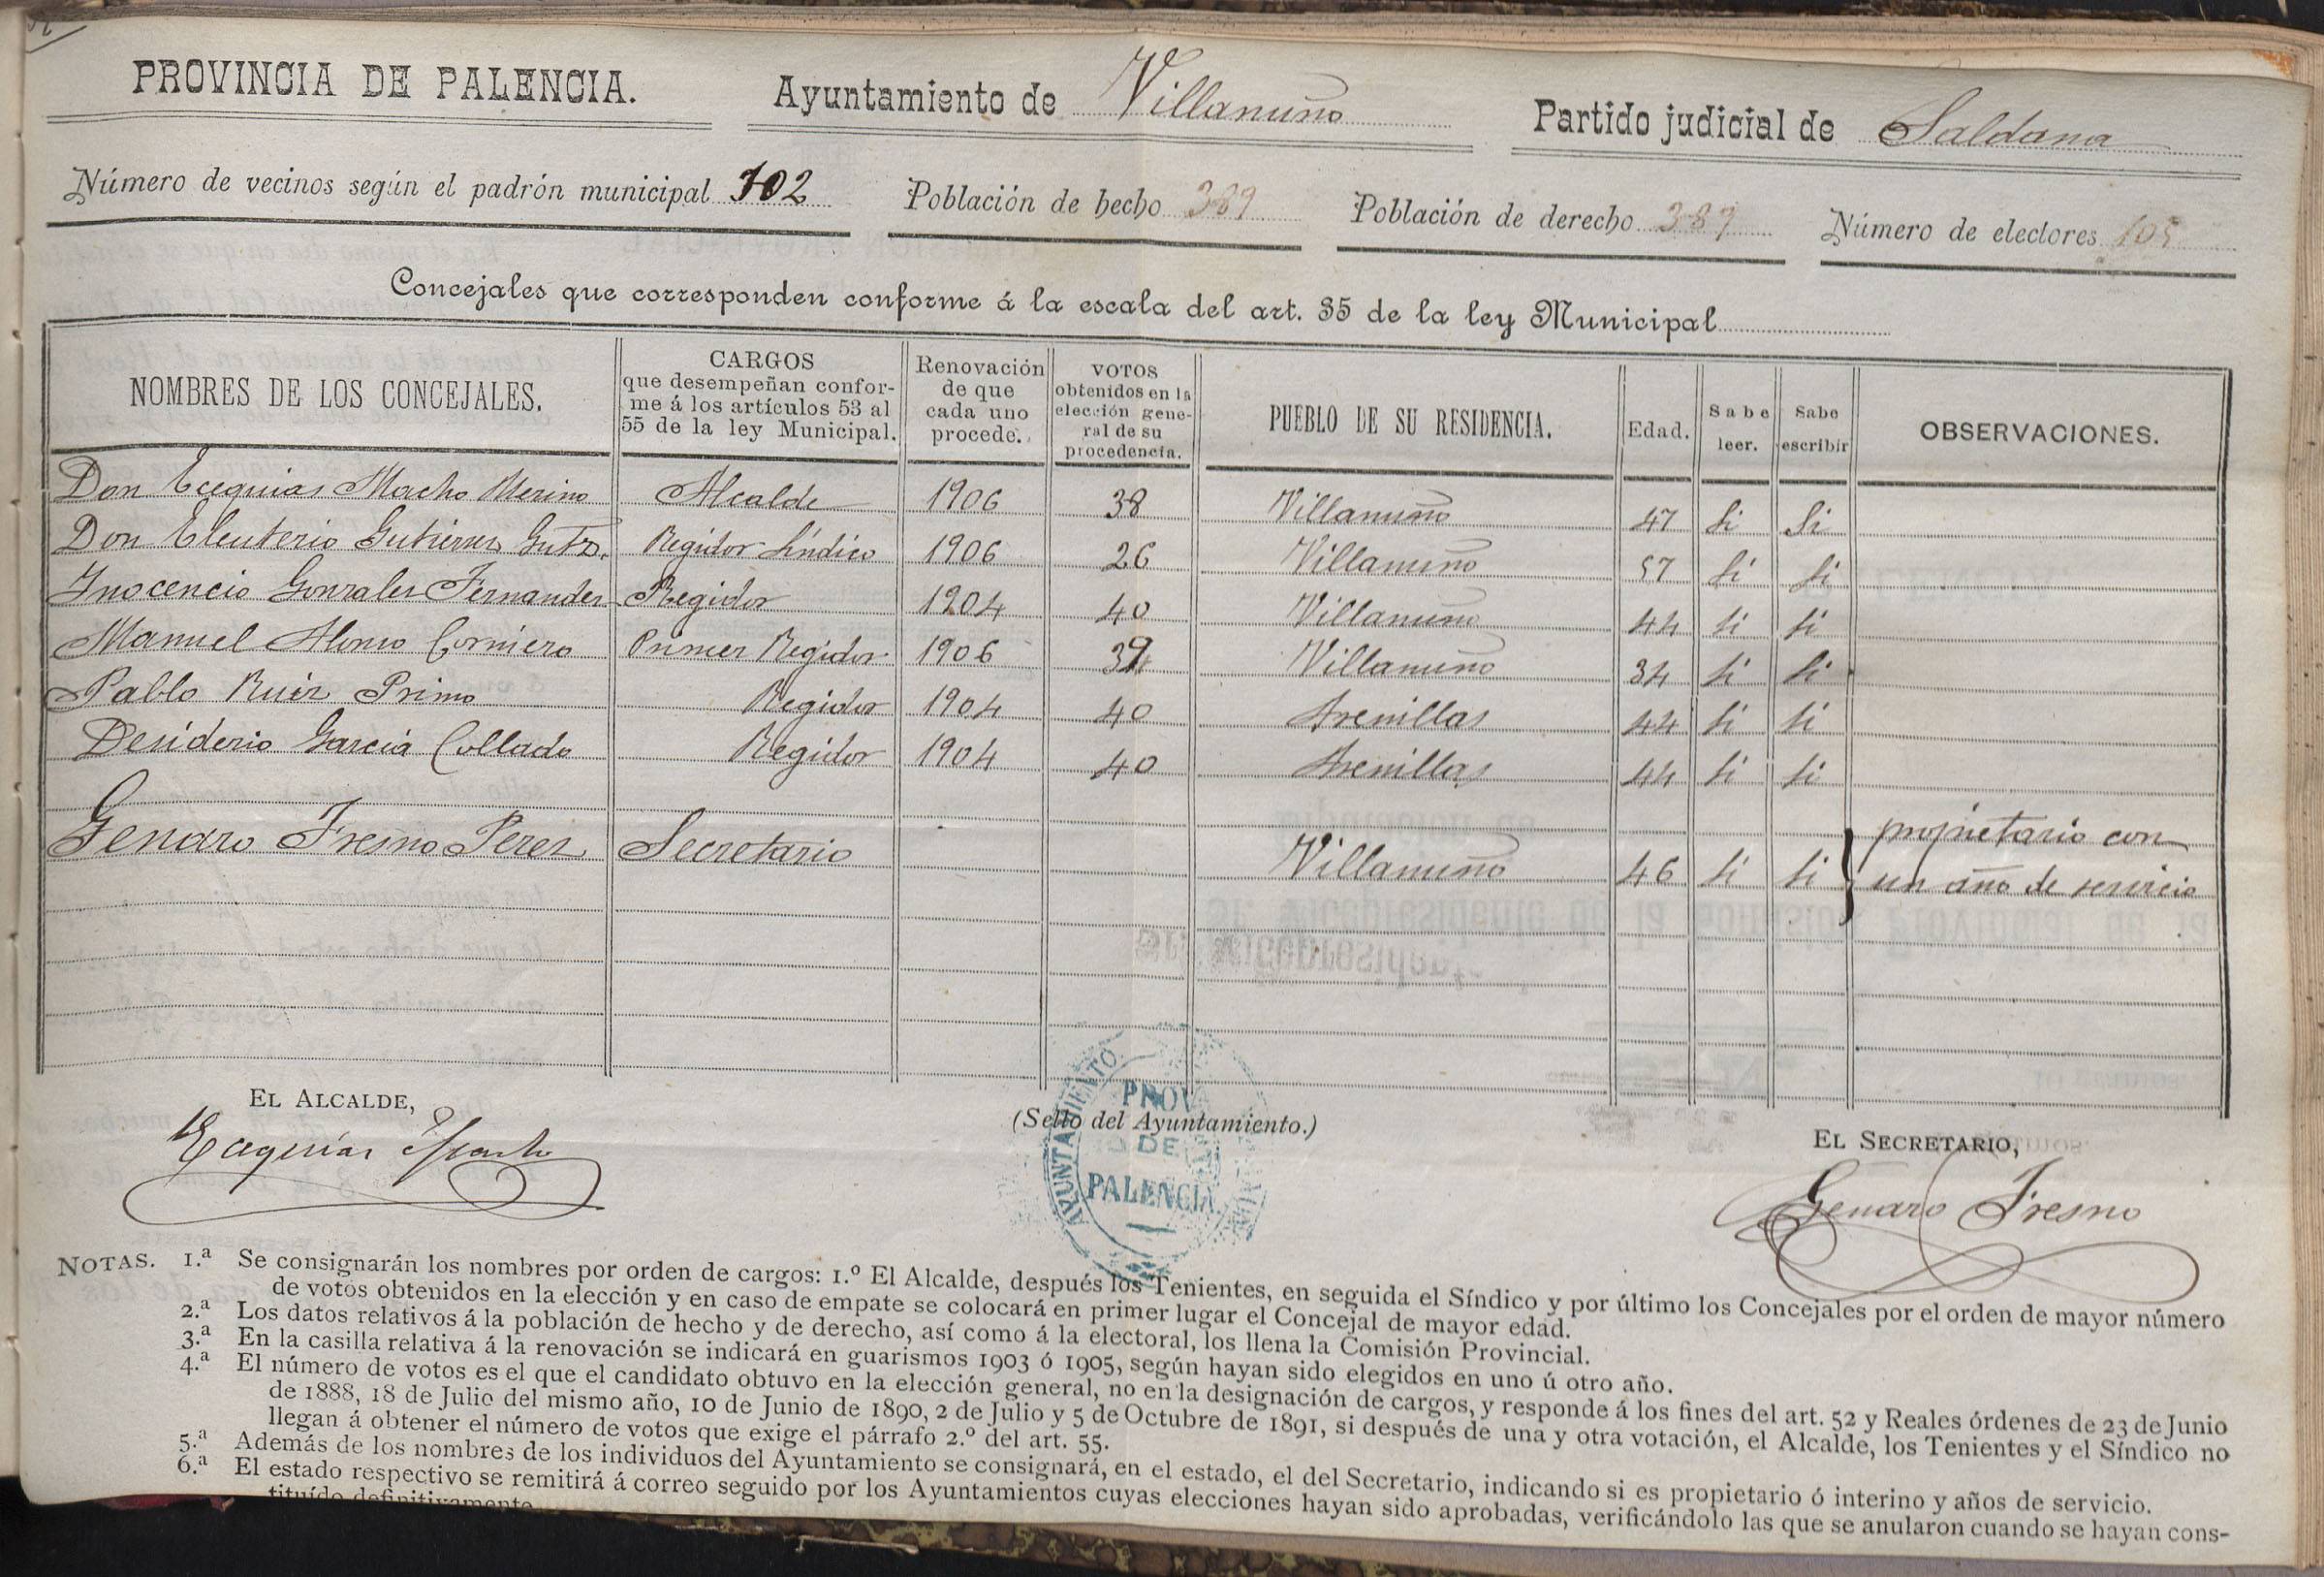 PROVINCIA DE PALENCIA. Ayuntamiento de Villanuño Partido judicial de Saldana
Número de vecinos según el padrón municipal 102 Población de hecho 389 Población de derecho 387 Número de electores 105
Concejales que corresponden conforme á la escala del art. 35 de la ley Municipal
NOMBRES DE LOS CONCEJALES. CARGOS que desempeñan confor-me á los artículos 53 al 55 de la ley Municipal. Renovación de que cada uno procede. VOTOS obtenidos en la elección gene-ral de su procedencia. PUEBLO DE SU RESIDENCIA. Edad. Sabe leer. Sabe escribir OBSERVACIONES.
Don Ecequias Macho Merino Alcalde 1906 38 Villanuño 47 Si Si
Don Eleuterio Gutierrez Gutz. Regidor Síndico 1906 26 Villanuño 57 Si Si
Inocencio Gonzales Fernandez Regidor 1904 40 Villanuño 44 Si Si
Manuel Alonso Corniero Primer Regidor 1906 Villanuño 34 Si Si
Pablo Ruiz Primo Regidor 1904 40 Arenillas 44 Si Si
Desiderio Garcia Collado Regidor 1904 40 Arenillas 44 Si Si
Genaro Fresno Perez Secretario Villanuño 46 Si Si propietario con
un año de servicio
EL ALCALDE,
Ecequias Macho
(Sello del Ayuntamiento.)
AYUNTAMIENTO
PROV
DE
PALENCIA
EL SECRETARIO,
Genaro Fresno
NOTAS. 1.ª Se consignarán los nombres por orden de cargos: 1.º El Alcalde, después los Tenientes, en seguida el Síndico y por último los Concejales por el orden de mayor número
de votos obtenidos en la elección y en caso de empate se colocará en primer lugar el Concejal de mayor edad.
2.ª Los datos relativos á la población de hecho y de derecho, así como á la electoral, los llena la Comisión Provincial.
3.ª En la casilla relativa á la renovación se indicará en guarismos 1903 ó 1905, según hayan sido elegidos en uno ú otro año.
4.ª El número de votos es el que el candidato obtuvo en la elección general, no en la designación de cargos, y responde á los fines del art. 52 y Reales órdenes de 23 de Junio
de 1888, 18 de Julio del mismo año, 10 de Junio de 1890, 2 de Julio y 5 de Octubre de 1891, si después de una y otra votación, el Alcalde, los Tenientes y el Síndico no
llegan á obtener el número de votos que exige el párrafo 2.º del art. 55.
5.ª Además de los nombres de los individuos del Ayuntamiento se consignará, en el estado, el del Secretario, indicando si es propietario ó interino y años de servicio.
6.ª El estado respectivo se remitirá á correo seguido por los Ayuntamientos cuyas elecciones hayan sido aprobadas, verificándolo las que se anularon cuando se hayan cons-
tituído definitivamente.